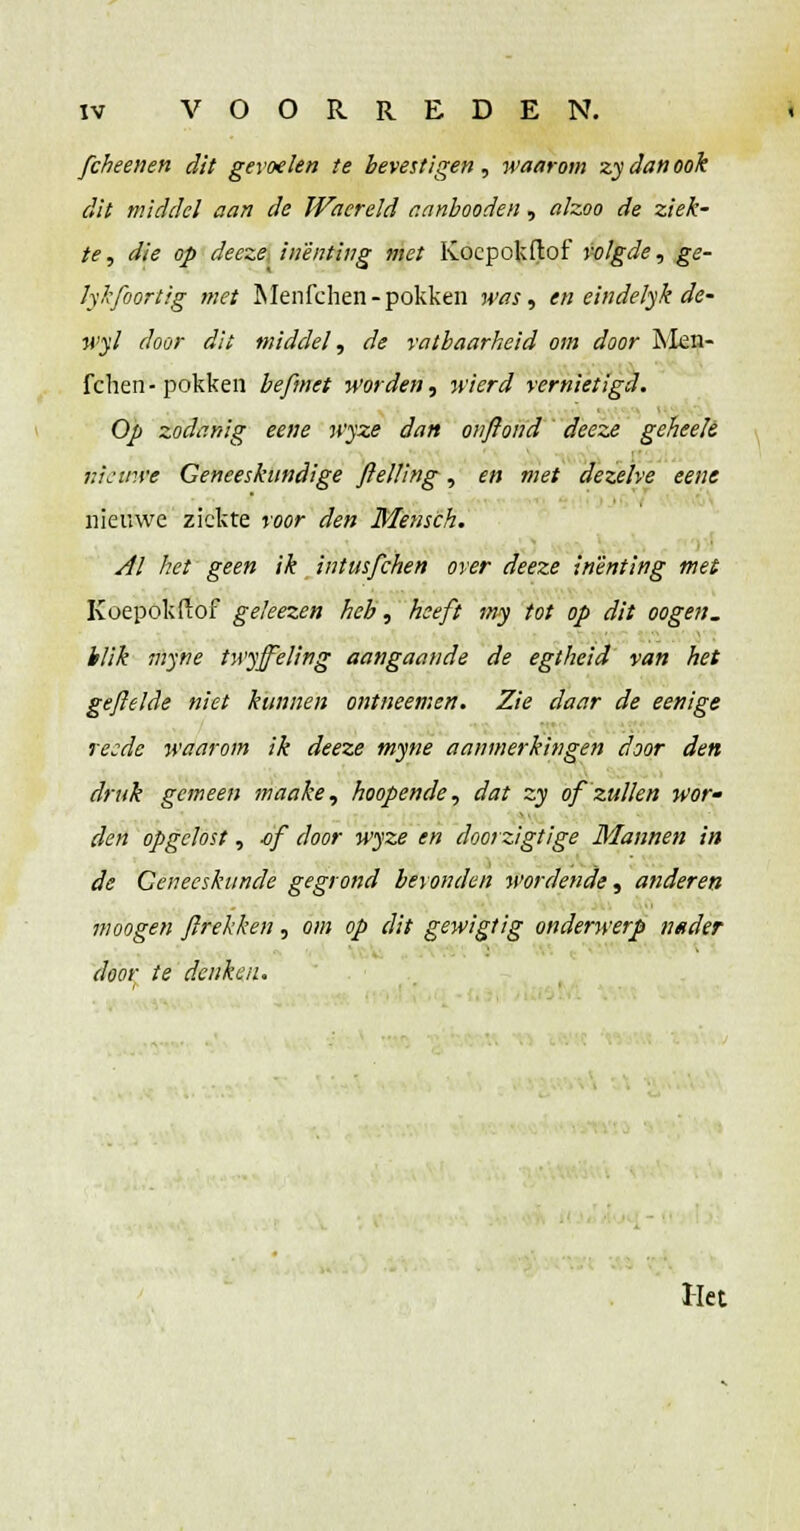 IV VOORREDEN.
ſcheenen dit gevoelen te bevestigen, waarom zy dan ook
dit middel aan de Waereld aanbooden, alzoo de ziek-
te, die op deeze inënting met Koepokſtof volgde, ge-
lykſoortig met Menſchen-pokken was, en eindelyk de-
wyl door dit middel, de vatbaarheid om door Men-
ſchen-pokken beſmet worden, wierd vernietigd.
Op zodanig eene wyze dan onſtond deeze geheele
nieuwe Geneeskundige ſtelling, en met dezelve eene
nieuwe ziekte voor den Mensch.
Al het geen ik intusſchen over deeze inënting met
Koepokſtof geleezen heb, heeft my tot op dit oogen-
blik myne twyffeling aangaande de egtheid van het
geſtelde niet kunnen ontneemen. Zie daar de eenige
reede waarom ik deeze myne aanmerkingen door den
druk gemeen maake, hoopende, dat zy of zullen wor-
den opgelost, of door wyze en doorzigtige Mannen in
de Geneeskunde gegrond bevonden wordende, anderen
moogen ſtrekken, om op dit gewigtig onderwerp nader
door te denken.
Het